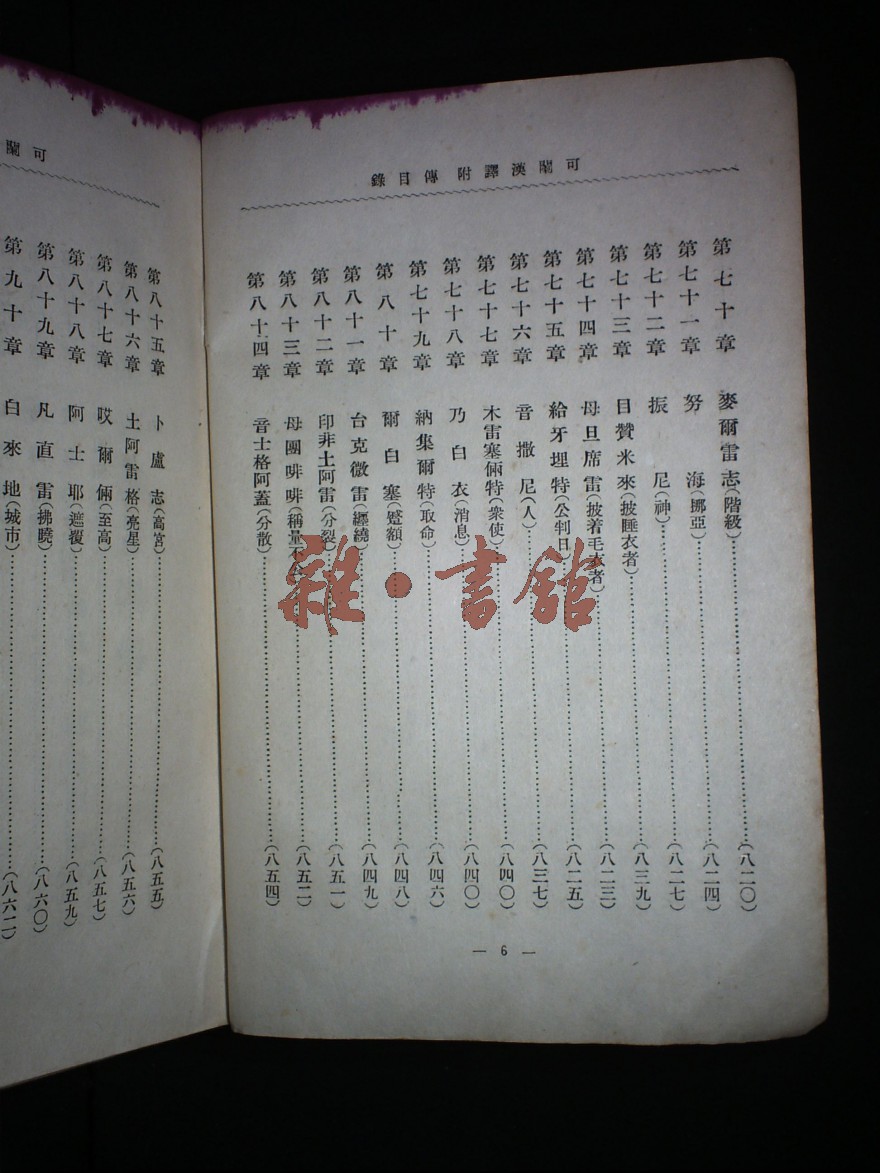 可蘭漢譯附傳目錄
第七十章 麥爾雷志(階級)(八二〇)
第七十一章 努海(挪亞)(八二四)
第七十二章 振尼(神)(八二七)
第七十三章 目贊米來(披睡衣者)(八三九)
第七十四章 母旦席雷(披着毛衣者)(八二三)
第七十五章 給牙埋特(公判日)(八二五)
第七十六章 音撒尼(人)(八三七)
第七十七章 木雷塞倆特(衆使)(八四〇)
第七十八章 乃白衣(消息)(八四〇)
第七十九章 納集爾特(取命)(八四六)
第八十章 爾白塞(蹙額)(八四八)
第八十一章 台克微雷(纏繞)(八四九)
第八十二章 印非土阿雷(分裂)(八五一)
第八十三章 母團啡啡(稱量不公)(八五二)
第八十四章 音士格阿蓋(分散)(八五四)
— 6 —
可蘭
第八十五章 卜盧志(高宮)(八五五)
第八十六章 土阿雷格(亮星)(八五六)
第八十七章 哎爾倆(至高)(八五七)
第八十八章 阿士耶(遮覆)(八五九)
第八十九章 凡直雷(拂曉)(八六〇)
第九十章 白來地(城市)(八六二)
雜·書館